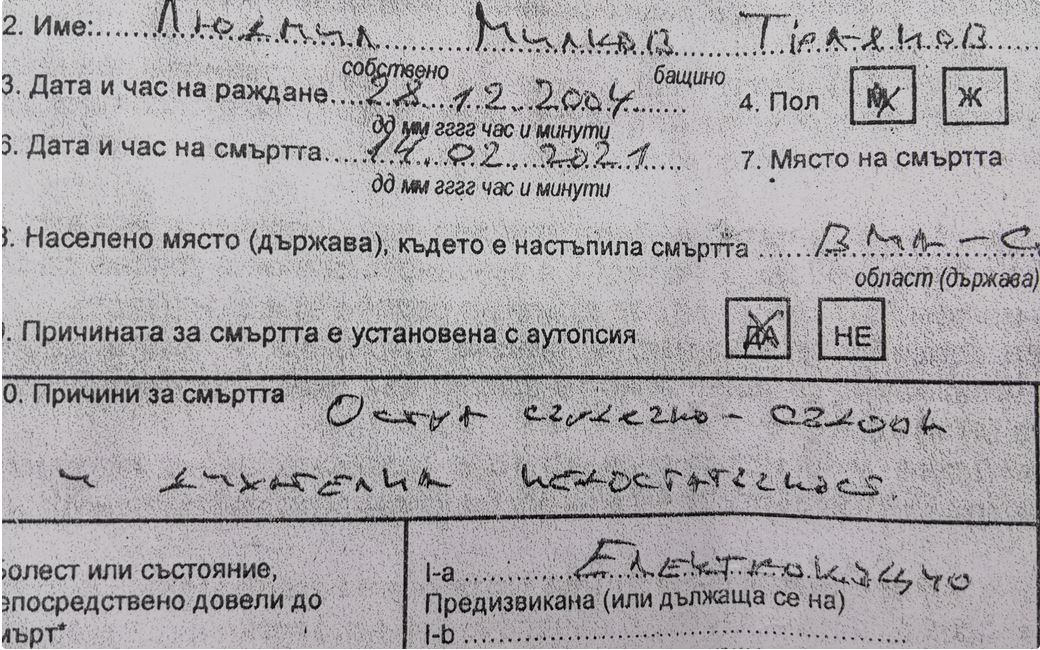 2. Име: Людмил Милков Траянов
собствено бащино
3. Дата и час на раждане 28.12.2004 4. Пол М Ж
дд мм гггг час и минути
6. Дата и час на смъртта 14.02.2021 7. Място на смъртта
дд мм гггг час и минути
8. Населено място (държава), където е настъпила смъртта ВМА - С
област (държава)
. Причината за смъртта е установена с аутопсия ДА НЕ
0. Причини за смъртта Остра сърдечно - съдова
и дихателна недостатъчност.
болест или състояние, I-a
епосредствено довели до Предизвикана (или дължаща се на)
мърт* I-b